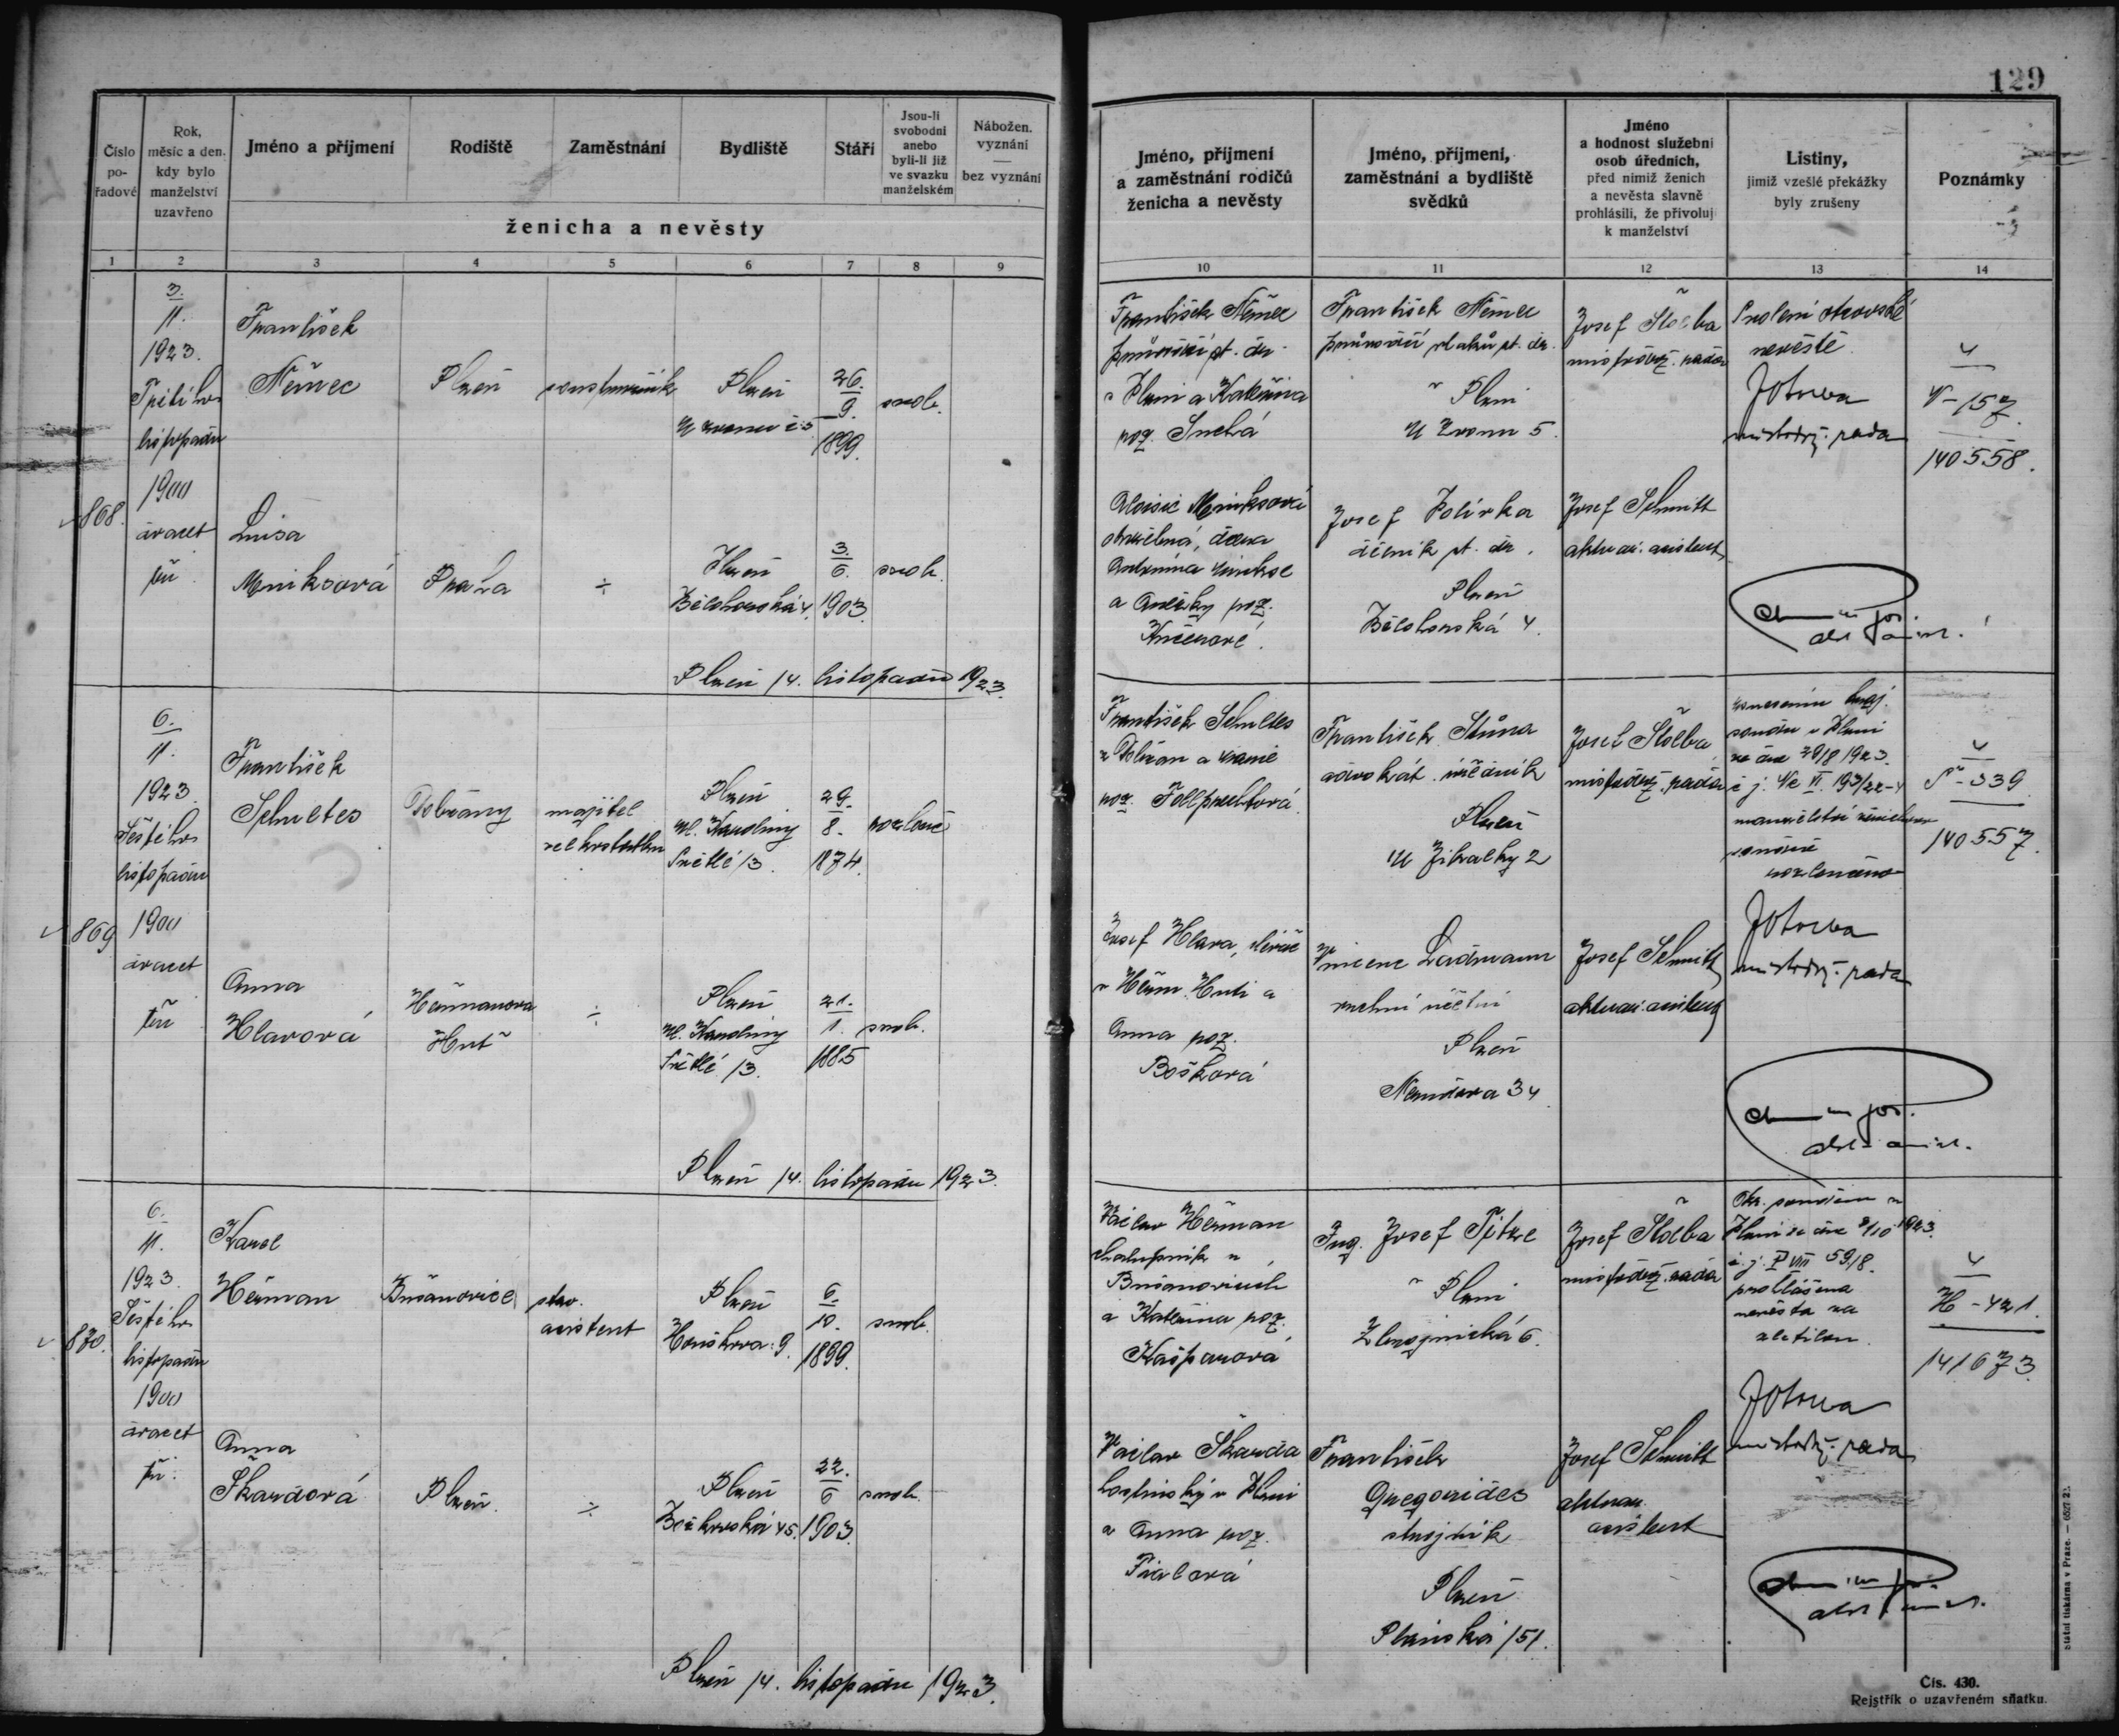 129
Číslo pořadové
Rok, měsíc a den, kdy bylo manželství uzavřeno
Jméno a příjmení
Rodiště
Zaměstnání
Bydliště
Stáří
Jsou-li svobodni anebo byli-li již ve svazku manželském
Nábožen. vyznání — bez vyznání
ženicha a nevěsty
1 2 3 4 5 6 7 8 9
Jméno, příjmení a zaměstnání rodičů ženicha a nevěsty
Jméno, příjmení, zaměstnání a bydliště svědků
Jméno a hodnost služební osob úředních, před nimiž ženich a nevěsta slavně prohlásili, že přivolují k manželství
Listiny, jimiž vzešlé překážky byly zrušeny
Poznámky
10 11 12 13 14
868.
3.
11.
1923.
Třetího
listopadu
1900
dvacet
tři
František
Němec
Plzeň
Plzeň
U zvonu č. 5
26.
9.
1899.
svob.
František Němec
průvodčí st. dr.
v Plzni a Kateřina
roz. Suchá
František Němec
průvodčí vlaků st. dr.
v Plzni
U Zvonu 5.
Josef Štolba
místodrž. rada
Svolení otcovské
nevěstě.
místodrž. rada
V-157.
140558.
Luisa
Meniksová
Praha
÷
Plzeň
Bělohorská 4.
3.
6.
1903.
svob.
Aloisie Meniksová
ovdovělá, dcera
Antonína
a Anežky roz.
Josef Polívka
dělník st. dr.
Plzeň
Bělohorská 4.
Josef Schmitt
aktuár. asistent
Plzeň 14. listopadu 1923.
869
6.
11.
1923
Šestého
listopadu
1900
dvacet
tři
František
Schultes
Dobřany
majitel
velkostatku
Plzeň
ul. Karoliny
Světlé 13.
29.
8.
1874.
rozlouč.
František Schultes
z Dobřan a
roz.
František Stůna
advokát. úředník
Plzeň
U Jikalky 2
Josef Štolba
místodrž. rada
usnesením kraj.
soudu v Plzni
ze dne 29/8 1923
manželství ženichovo
soudně
rozloučeno
místodrž. rada
S-339
140557.
Anna
Hlavová
Heřmanova
Huť
÷
Plzeň
ul. Karoliny
Světlé 13.
21.
1.
1885
svob.
Josef Hlava,
v Heřm. Huti a
Anna roz.
Bošková
Vincenc Ladmann
vrchní účetní
Plzeň
Nerudova 34
Josef Schmitt
aktuár. asistent
Plzeň 14. listopadu 1923.
870.
6.
11.
1923.
Šestého
listopadu
1900
dvacet
tři.
Karel
Heřman
Bušanovice
stav.
asistent
Plzeň
Houškova: 9.
6.
10.
1899.
svob.
Václav Heřman
chalupník v
Bušanovicích
a Kateřina roz.
Kašparová
Ing. Josef
v Plzni
6.
Josef Štolba
místodrž. rada
Okr. soudem v
Plzni ze dne 9/10 1923.
č. j. P VIII 59/8.
prohlášena
nevěsta za
zletilou
místodrž. rada
H-421.
141673.
Anna
Škardová
Plzeň.
÷
Plzeň
45.
22.
6
1903.
svob.
Václav Škarda
hostinský v Plzni
a Anna roz.
Fialová
František
Gregorides
strojník
Plzeň
Plánská 151.
Josef Schmitt
aktuar.
asistent
Plzeň 14. listopadu 1923.
Státní tiskárna v Praze. — 6527-22.
Čís. 430.
Rejstřík o uzavřeném sňatku.